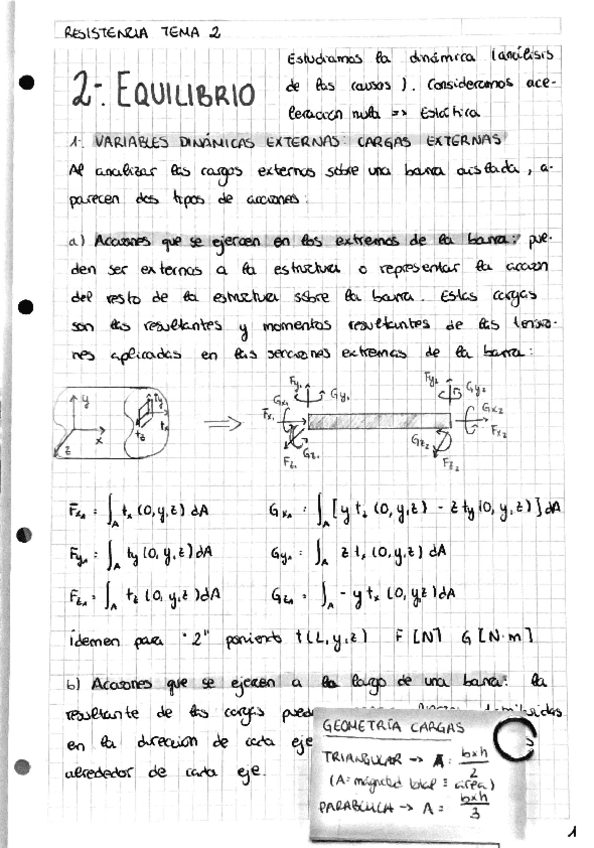 RESISTENCIA TEMA 2
2-. EQUILIBRIO
Estudiamos la dinámica (análisis
de las causas). Consideramos ace-
leración nula => Estática
1-. VARIABLES DINÁMICAS EXTERNAS: CARGAS EXTERNAS
Al analizar las cargas externas sobre una barra aislada, a-
parecen dos tipos de acciones:
a) Acciones que se ejercen en los extremos de la barra: pue-
den ser externas a la estructura o representar la acción
del resto de la estructura sobre la barra. Estas cargas
son las resultantes y momentos resultantes de las tensio-
nes aplicadas en las secciones extremas de la barra:
y x z ty tx tz
=>
Fy₁ Gy₁ Gx₁ Fx₁ Gz₁ Fz₁
Fy₂ Gy₂ Gx₂ Fx₂ Gz₂ Fz₂
Fx₁ = ∫A tx (0,y,z) dA
Gx₁ = ∫A [y tz (0,y,z) - z ty (0,y,z)] dA
Fy₁ = ∫A ty (0,y,z) dA
Gy₁ = ∫A z tx (0,y,z) dA
Fz₁ = ∫A tz (0,y,z) dA
Gz₁ = ∫A - y tx (0,y,z) dA
idemen para "2" poniento t(L,y,z) F [N] G [N·m]
b) Acciones que se ejercen a lo largo de una barra: la
resultante de las cargas
en la dirección de cada eje
alrededor de cada eje.
GEOMETRÍA CARGAS
TRIANGULAR -> A = b×h/2
(A = magnitud total = área)
PARABÓLICA -> A = b×h/3
1